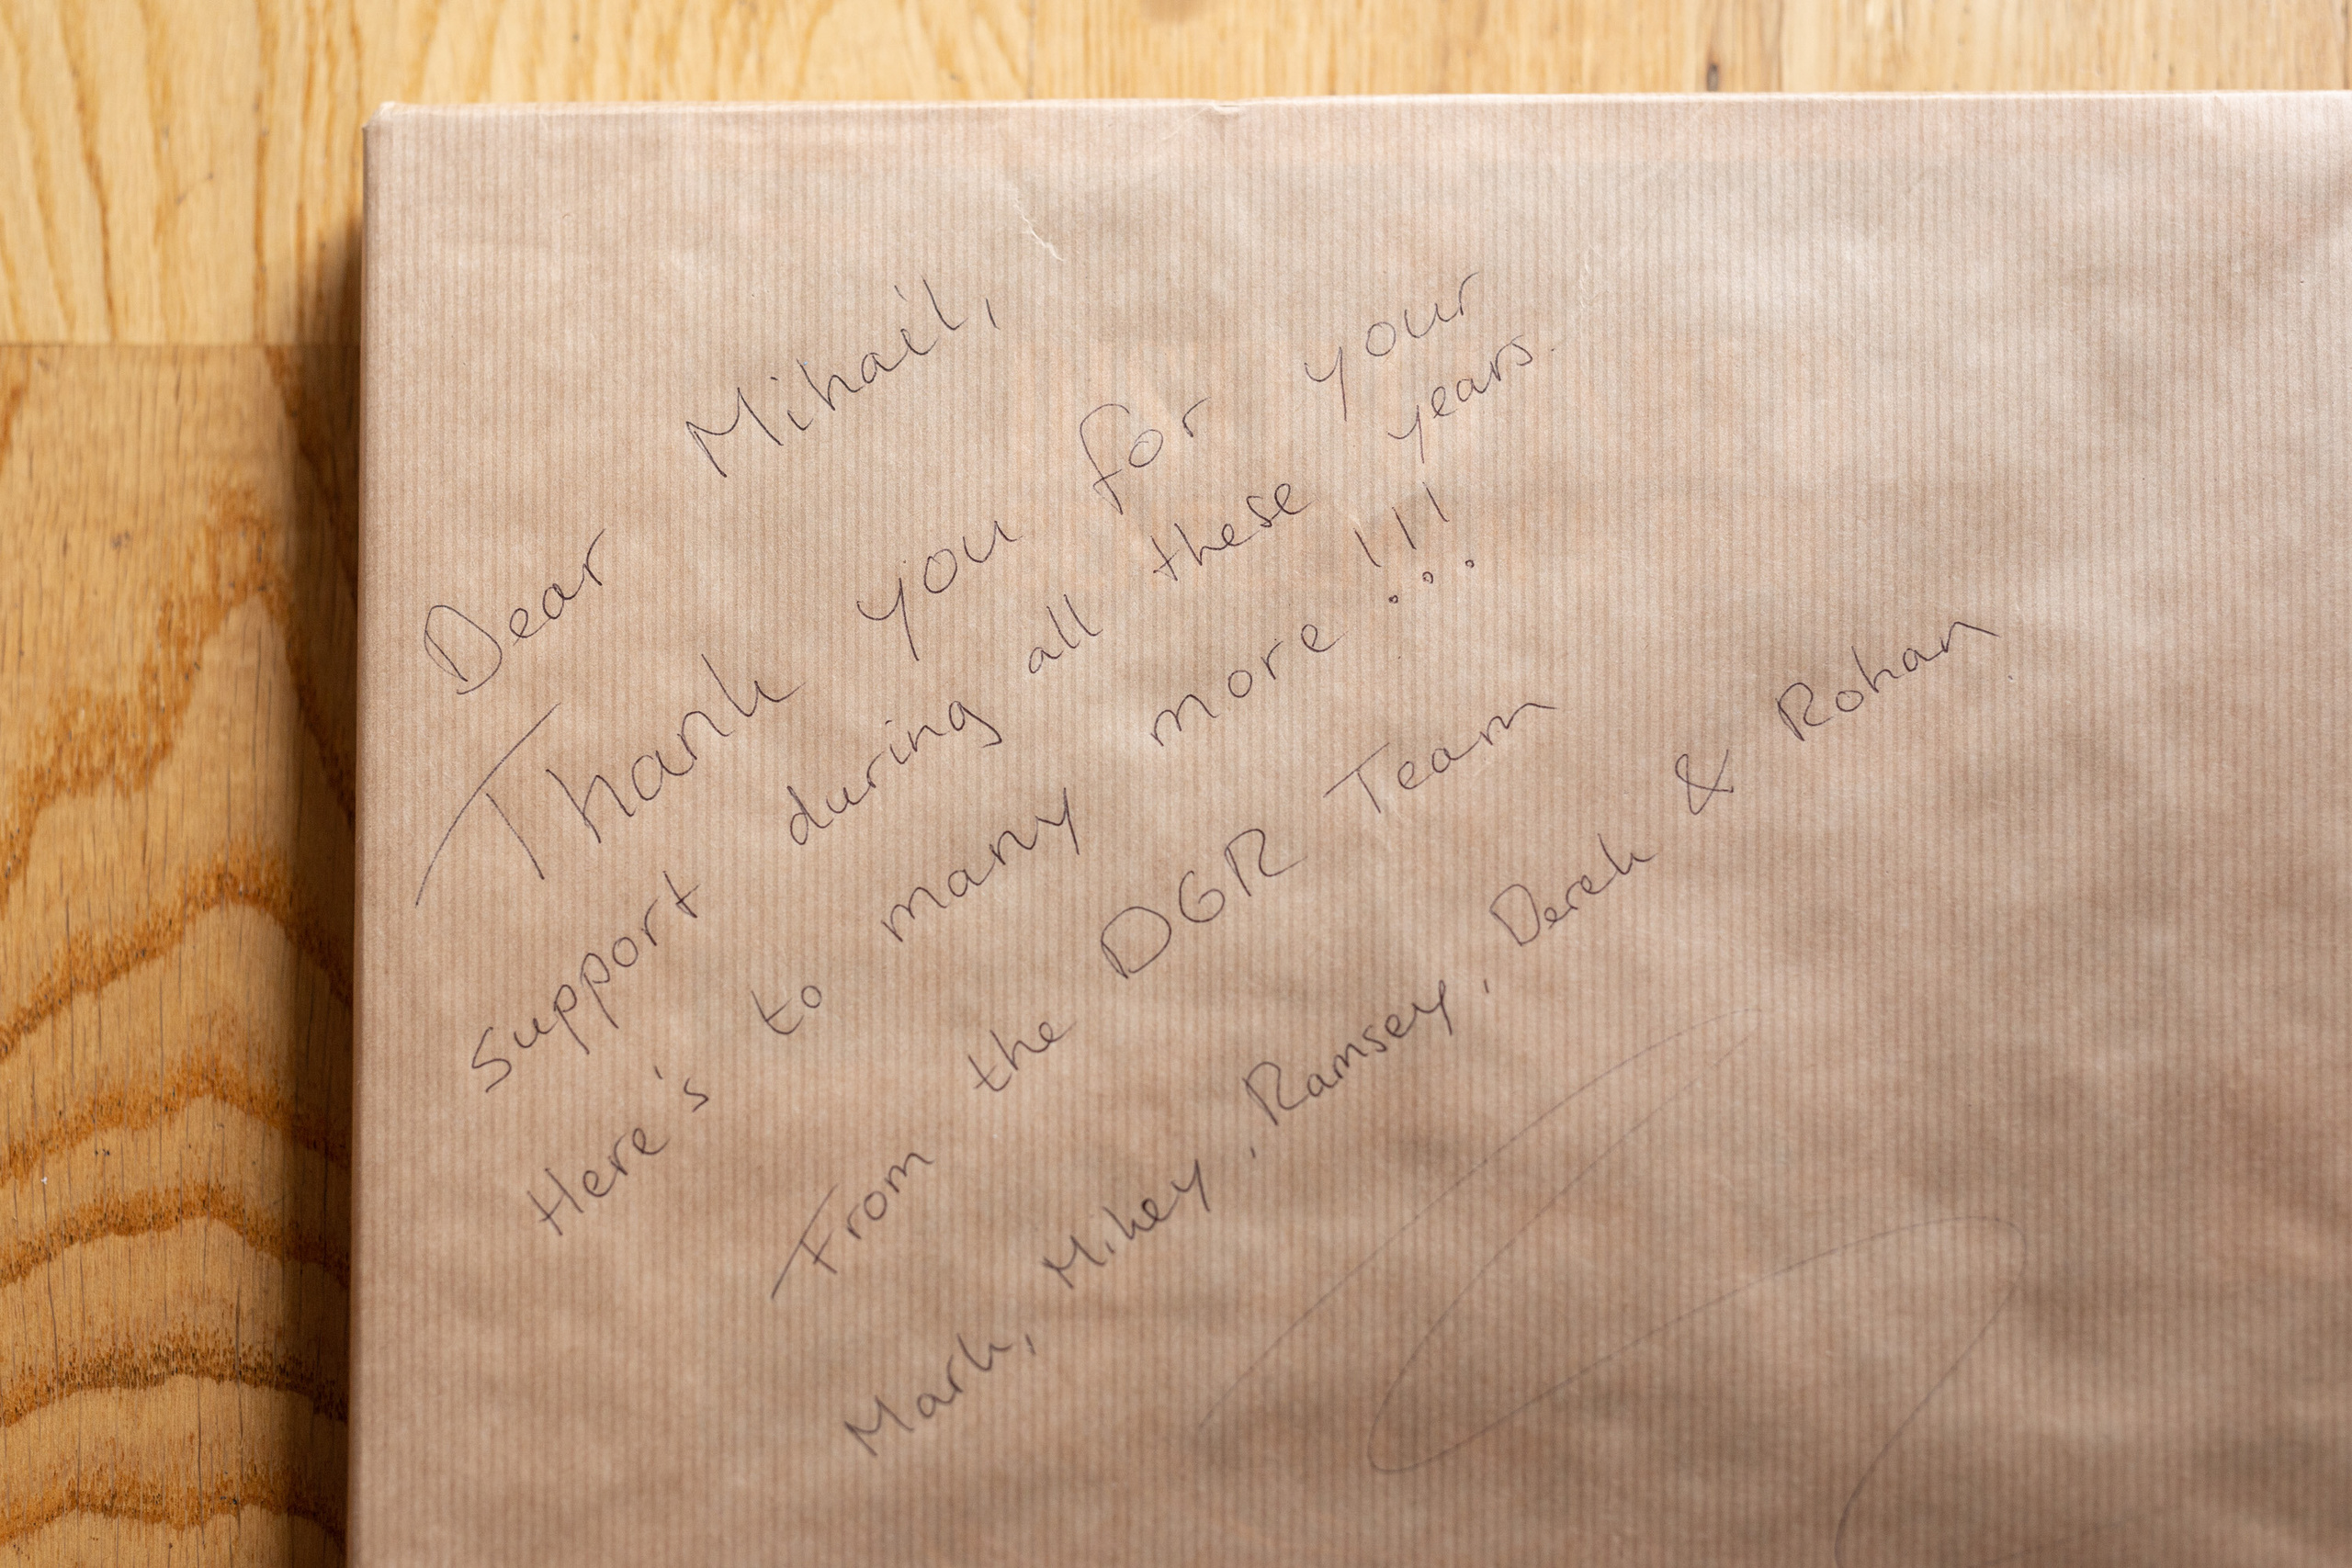 Dear Mihail,
Thank you for your
support during all these years.
Here's to many more!!!
From the DGR Team
Mark, Mikey, Ramsey, Derek & Rohan